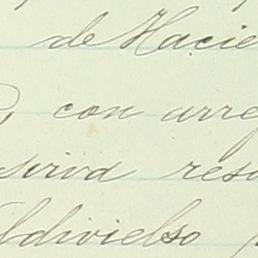 de Hacie
, con arre
sirva reso
ldivielso